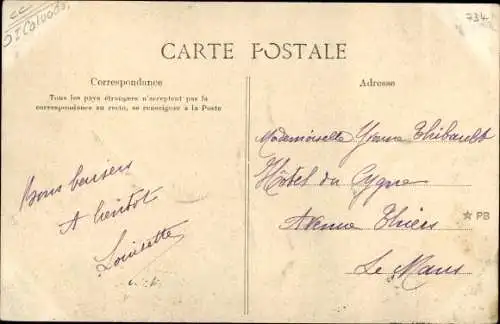 CC
Calvados
734
CARTE POSTALE
Correspondance
Tous les pays étrangers n'acceptent pas la
correspondance au recto, se renseigner à la Poste
Bons baisers
A bientôt
Louisette
Adresse
Mademoiselle Yvonne Thibault
Hôtel du Cygne
Avenue Thiers
Le Mans
PB